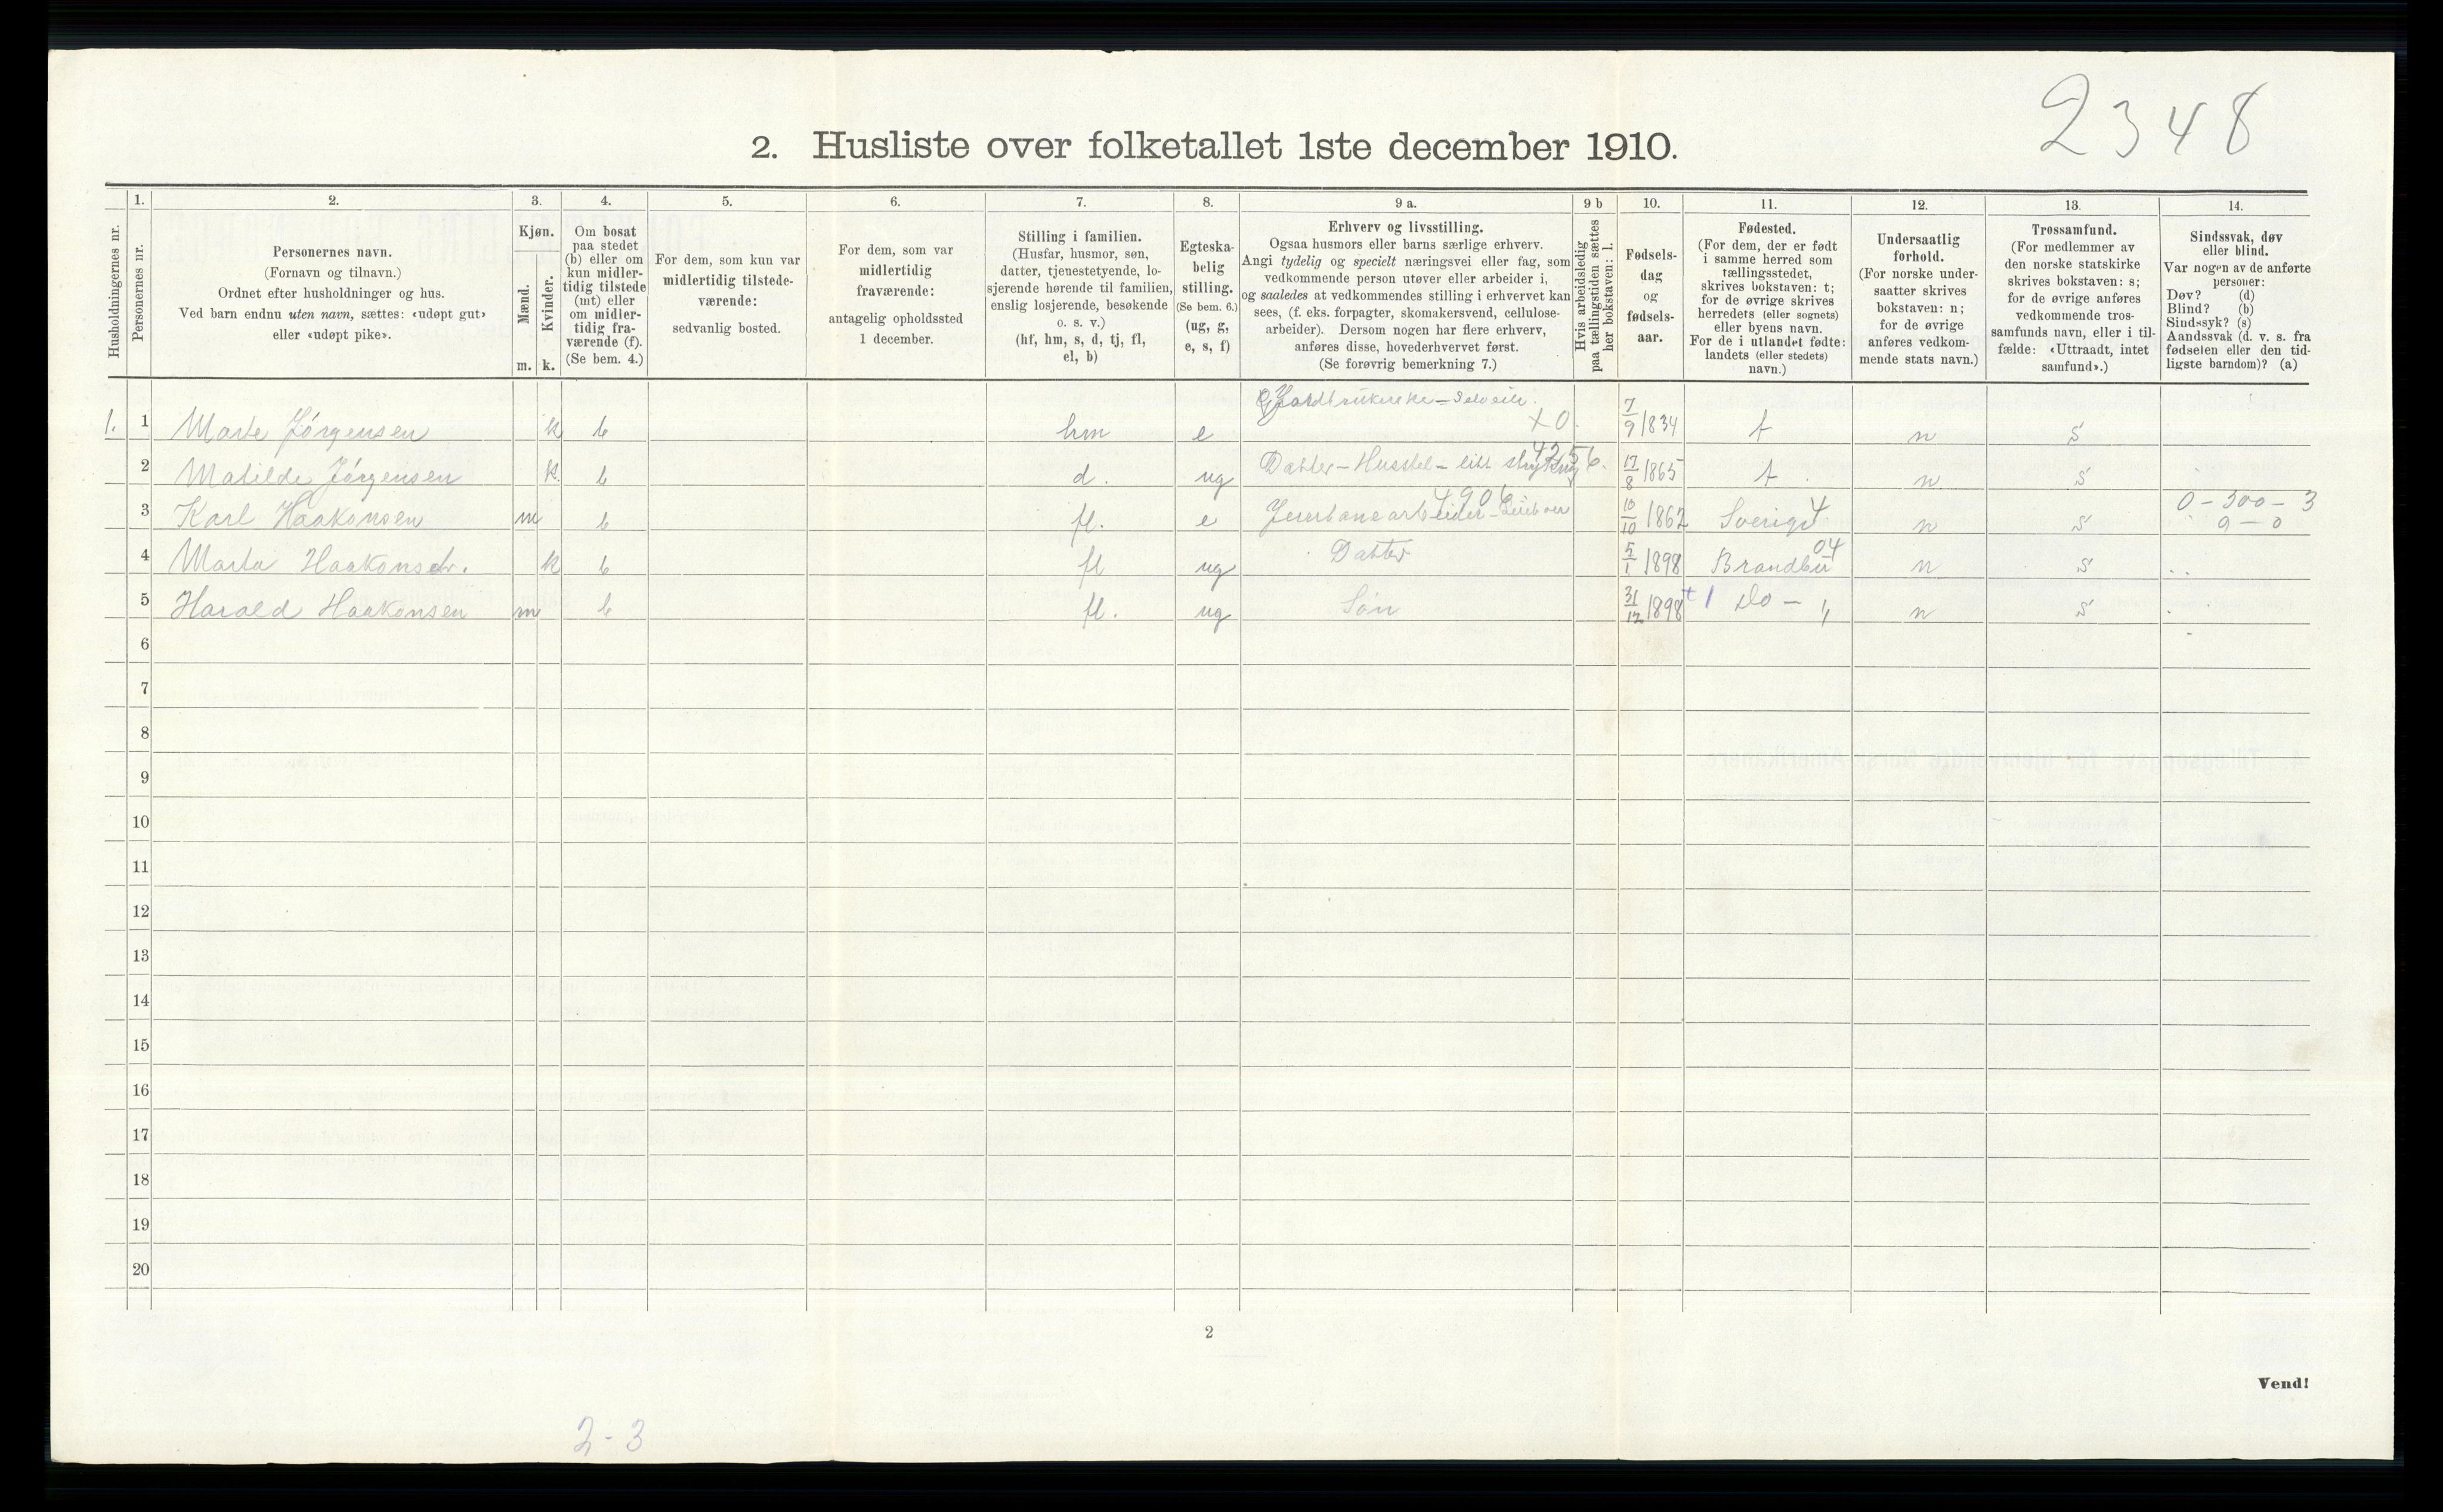 2348
2. Husliste over folketallet 1ste december 1910.
Husholdningernes nr.
1.
Personernes nr.
2.
Personernes navn.
(Fornavn og tilnavn.)
Ordnet efter husholdninger og hus.
Ved barn endnu uten navn, sættes: «udøpt gut»
eller «udøpt pike».
3.
Kjøn.
Mænd.
Kvinder.
m. k.
4.
Om bosat
paa stedet
(b) eller om
kun midler-
tidig tilstede
(mt) eller
om midler-
tidig fra-
værende (f).
(Se bem. 4.)
5.
For dem, som kun var
midlertidig tilstede-
værende:
sedvanlig bosted.
6.
For dem, som var
midlertidig
fraværende:
antagelig opholdssted
1 december.
7.
Stilling i familien.
(Husfar, husmor, søn,
datter, tjenestetyende, lo-
sjerende hørende til familien,
enslig losjerende, besøkende
o. s. v.)
(hf, hm, s, d, tj, fl,
el, b)
8.
Egteska-
belig
stilling.
(Se bem. 6.)
(ug, g,
e, s, f)
9 a.
Erhverv og livsstilling.
Ogsaa husmors eller barns særlige erhverv.
Angi tydelig og specielt næringsvei eller fag, som
vedkommende person utøver eller arbeider i,
og saaledes at vedkommendes stilling i erhvervet kan
sees, (f. eks. forpagter, skomakersvend, cellulose-
arbeider). Dersom nogen har flere erhverv,
anføres disse, hovederhvervet først.
(Se forøvrig bemerkning 7.)
9 b
Hvis arbeidsledig
paa tællingstiden sættes
her bokstaven: l.
10.
Fødsels-
dag
og
fødsels-
aar.
11.
Fødested.
(For dem, der er født
i samme herred som
tællingsstedet,
skrives bokstaven: t;
for de øvrige skrives
herredets (eller sognets)
eller byens navn.
For de i utlandet fødte:
landets (eller stedets)
navn.)
12.
Undersaatlig
forhold.
(For norske under-
saatter skrives
bokstaven: n;
for de øvrige
anføres vedkom-
mende stats navn.)
13.
Trossamfund.
(For medlemmer av
den norske statskirke
skrives bokstaven: s;
for de øvrige anføres
vedkommende tros-
samfunds navn, eller i til-
fælde: «Uttraadt, intet
samfund».)
14.
Sindssvak, døv
eller blind.
Var nogen av de anførte
personer:
Døv? (d)
Blind? (b)
Sindssyk? (s)
Aandssvak (d. v. s. fra
fødselen eller den tid-
ligste barndom)? (a)
1. 1 Marte Jørgensen k b hm e Gjordbrukerske - Selveier. x 0. 7/9 1834 t n s
2 Matilde Jørgensen k. b d. ug Datter - Husstel - litt 4256. 17/8 1865 t. n s
3 Karl Haakonsen m b fl. e Jernbanearbeider 4906 10/10 1862 Sverige 4 n s 0-300-3
9-0
4 Marta Haakonsdr. k b fl ug Datter 5/1 1898 Brandbu 04 n s
5 Harald Haakonsen m b fl. ug Søn 31/12 1898 t1 Do - " n s
6
7
8
9
10
11
12
13
14
15
16
17
18
19
20
2
Vend!
2-3